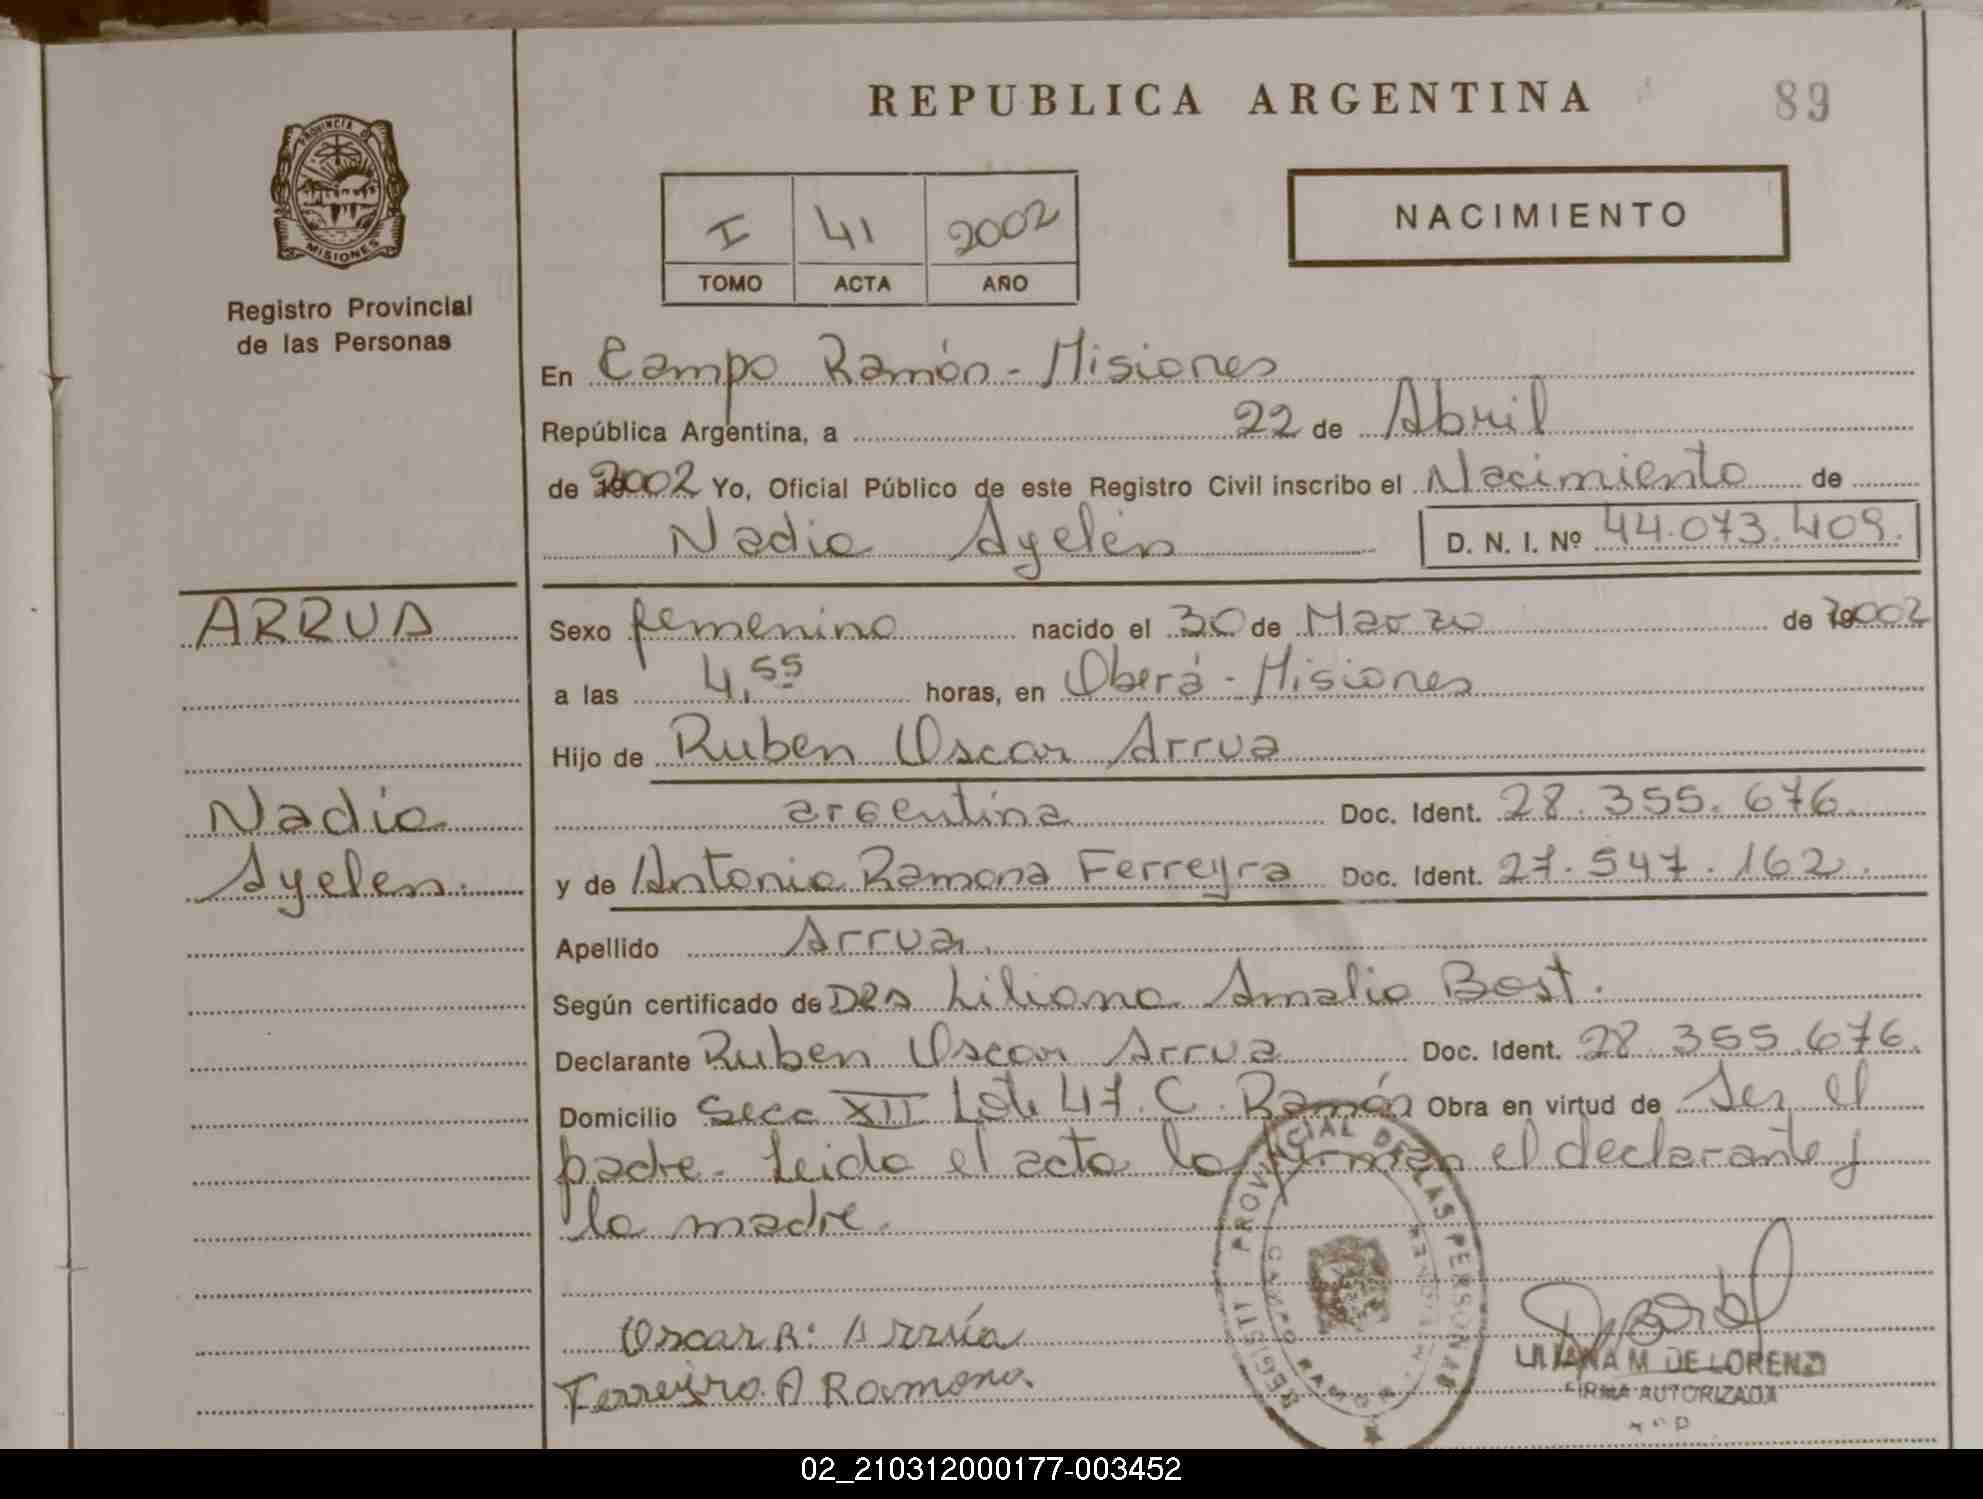 REPUBLICA ARGENTINA
89
PROVINCIA DE
MISIONES
Registro Provincial
de las Personas
I 41 2002
TOMO ACTA AÑO
NACIMIENTO
En Campo Ramón - Misiones
República Argentina, a 22 de Abril
de 2002 Yo, Oficial Público de este Registro Civil inscribo el Nacimiento de
Nadia Ayelén D. N. I. Nº 44.073.409.
ARRUA
Sexo femenino nacido el 30 de Marzo de 2002
a las 4,55 horas, en Oberá - Misiones
Hijo de Ruben Oscar Arrua
Nadia
argentina Doc. Ident. 28.355.676.
Ayelen.
y de Antonia Ramona Ferreyra Doc. Ident. 27.547.162.
Apellido Arrua.
Según certificado de DRA Liliana Amalia Bost.
Declarante Ruben Oscar Arrua Doc. Ident. 28.355.676.
Domicilio Secc XII Lote 47. C. Ramón Obra en virtud de Ser el
padre. Leida el acta la firman el declarante y
la madre.
Oscar R. Arrúa
Ferreyra A Ramona.
REGISTR PROVINCIAL DE LAS PERSONAS
CAMPO RAMON
LILIANA M. DE LORENZI
FIRMA AUTORIZADA
02_210312000177-003452